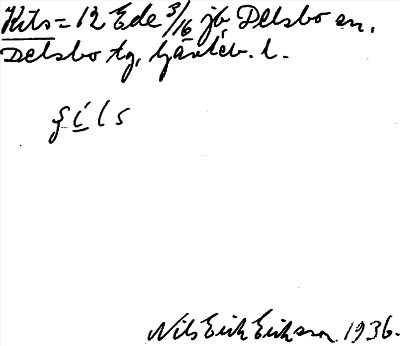 Kils = 12 Ede 3/16 jb Delsbo sn,
Delsbo tg, Gävleb. l.
Nils Erik Eriksson 1936.